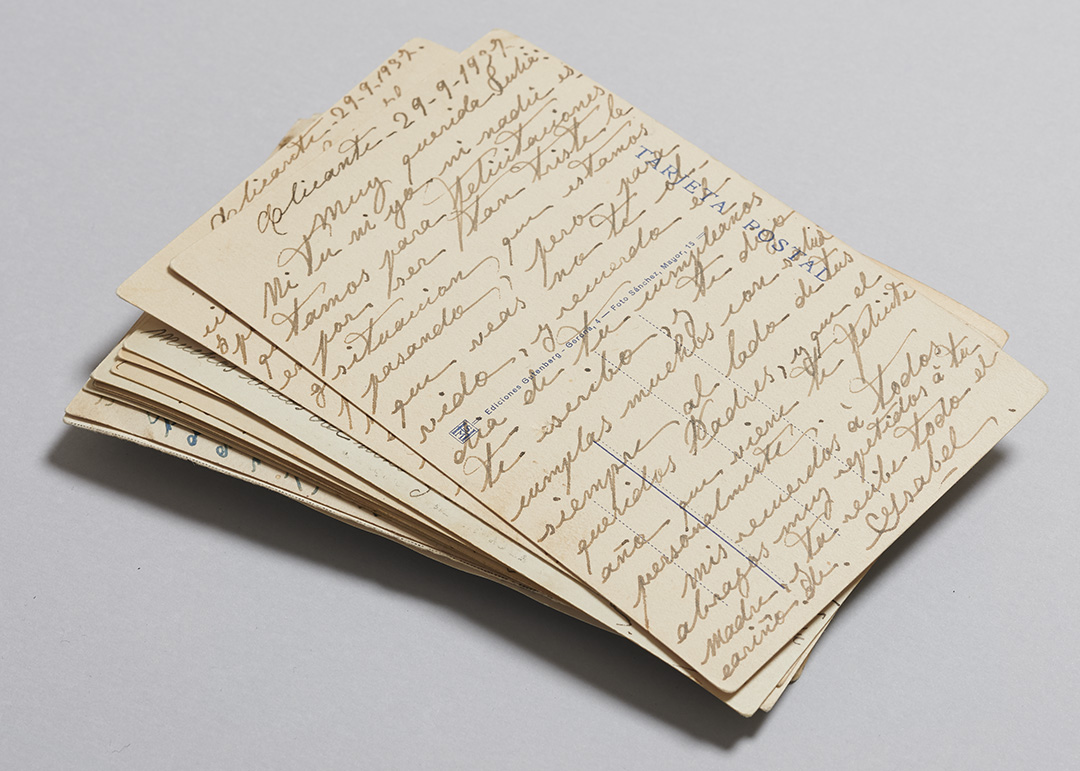 Alicante - 29-9-1937.
Alicante - 29-9-1937.
Muy querida Julia:
Ni tu ni yo, ni nadie es-
tamos para felicitaciones
por ser tan triste la
situacion, que estamos
pasando; pero para
que veas no te ol-
vido; y recuerdo el
dia de tu cumpleaños
te escribo
cumplas muchos con salud
siempre al lado de tus
queridos Padres; y que el
año que viene te felicite
personalmente.
mis recuerdos à todos
abrazos muy repetidos à tu
madre, y tu recibe todo el
cariño de. Isabel
TARJETA POSTAL
Ediciones Gutenberg - Gerona, 4 — Foto Sánchez, Mayor, 15